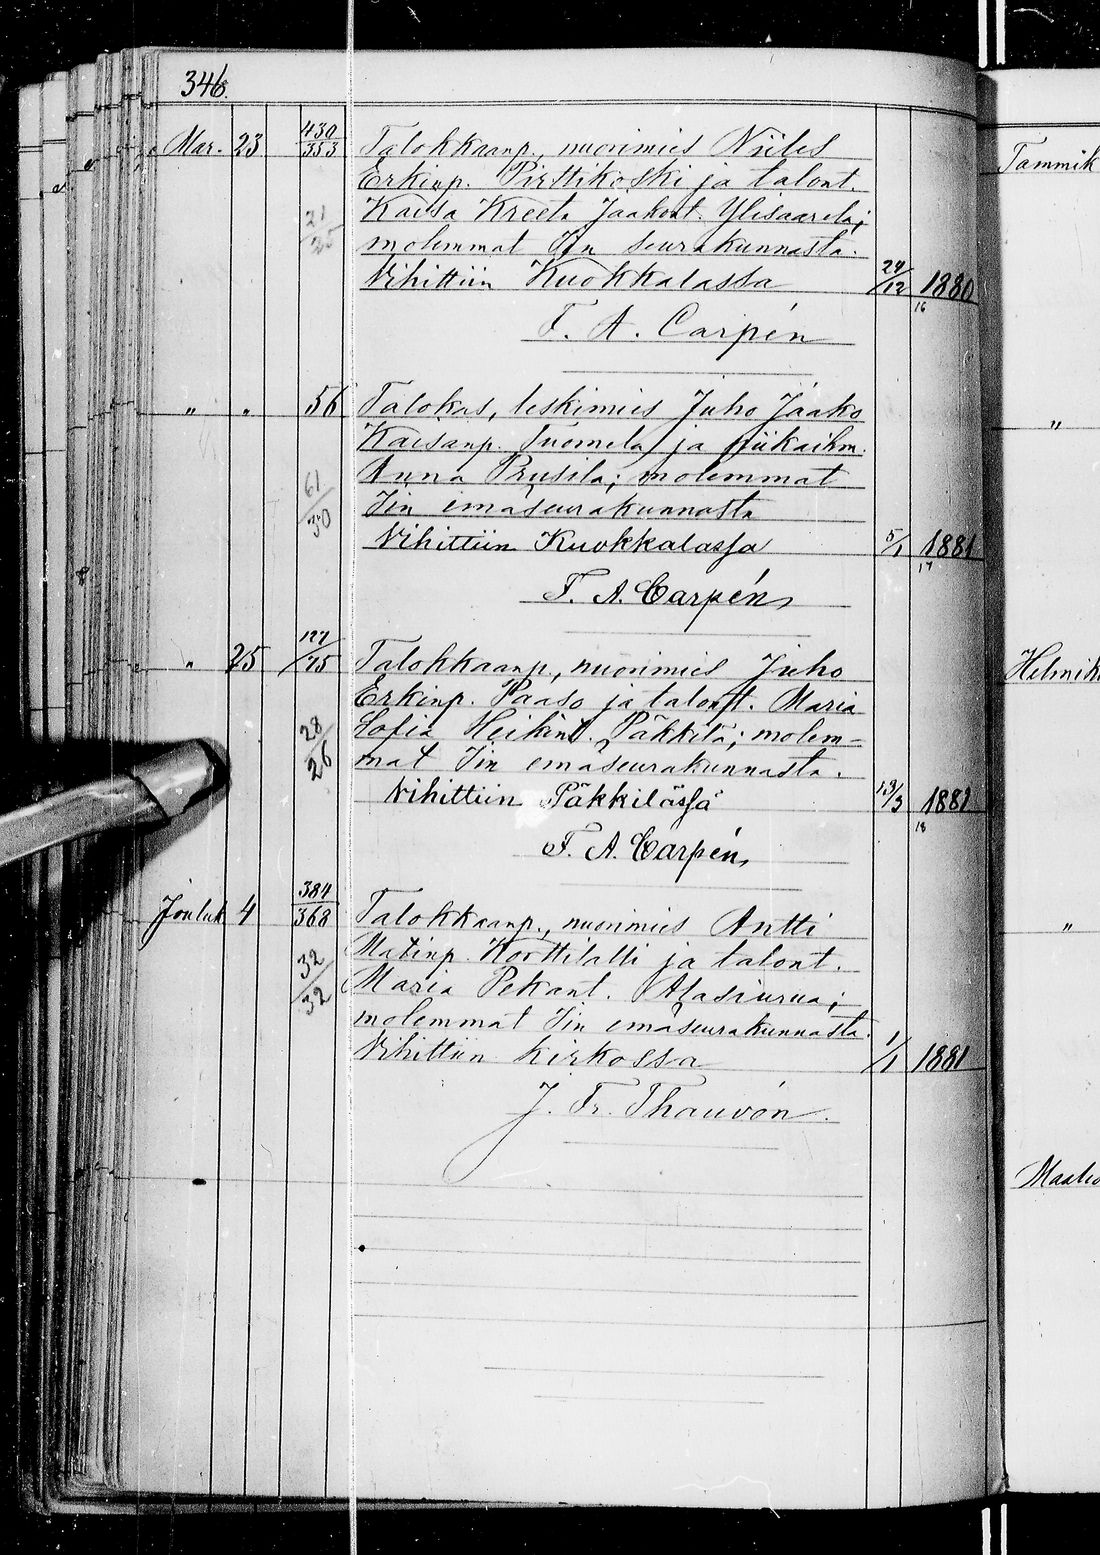 346.
Mar. 23 430/353 Talokkaanp., nuorimies Niiles
Erkinp. Pirttikoski ja talont.
21/25 Kaisa Kreeta Jaakont. Ylisaarela;
molemmat Iin seurakunnasta.
Vihittiin Kuokkalassa 24/12 1880
16
F. A. Carpén
" " 56 Talokas, leskimies Juho Jaako
Kaisanp. Tuomela ja piikaihm.
61/30 Anna Prusila; molemmat
Iin emäseurakunnasta
Vihittiin Kuokkalassa 5/1 1881
17
F. A. Carpén
" 25 127/75 Talokkaanp., nuorimies Juho
Erkinp. Paaso ja talont. Maria
28/26 Sofia Heikint. Päkkilä; molem-
mat Iin emäseurakunnasta.
Vihittiin Päkkilässä 13/3 1881
18
F. A. Carpén
Jouluk 4 384/368 Talokkaanp., nuorimies Antti
Matinp. Korttilatti ja talont.
32/32 Maria Pekant. Alasiurua;
molemmat Iin emäseurakunnasta.
Vihittiin kirkossa 1/1 1881
J. Fr. Thauvón.
Tammik
"
Helmik
"